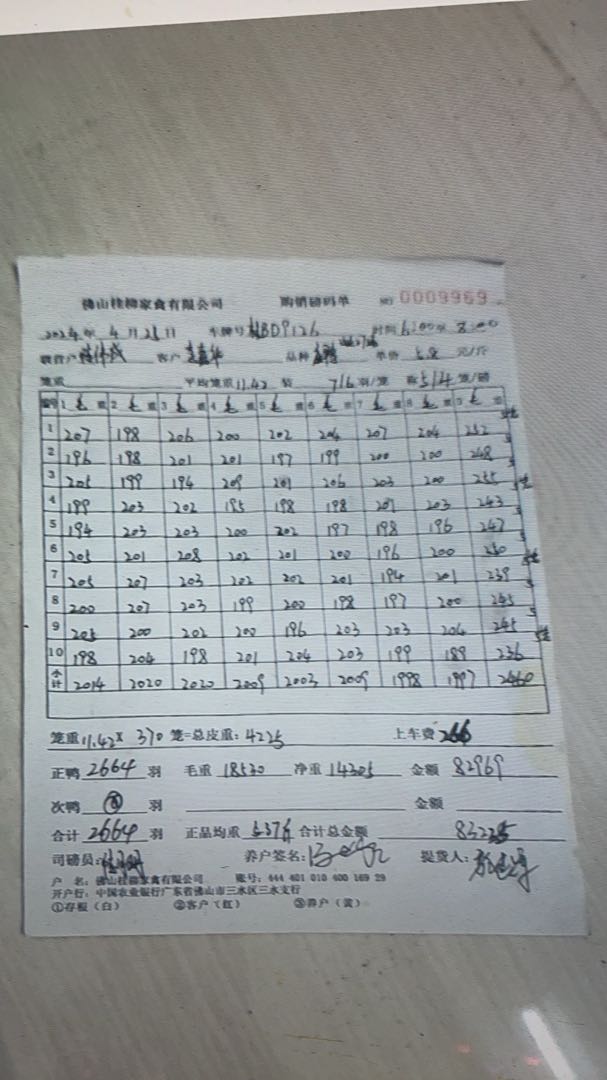 佛山桂柳家禽有限公司 购销磅码单 NO 0009969
2024年 4月25日 车牌号 BD9126 时间 6:00 至 8:00
客户 品种 单价 5.8 元/斤
笼重 平均笼重 11.42 装 7/6 羽/笼 称 5/4 笼/磅
编号 1 毛 重 2 毛 重 3 毛 重 4 毛 重 5 毛 重 6 毛 重 7 毛 重 8 毛 重 9 毛 重
1 207 198 206 200 202 204 207 204 252
2 196 198 201 201 197 199 200 200 248
3 205 199 194 209 201 206 203 200 255
4 199 203 202 195 198 198 201 203 243
5 194 203 203 200 202 197 198 196 247
6 205 201 208 202 201 200 196 200 250
7 205 207 203 202 202 201 194 201 239
8 200 207 203 199 200 198 197 200 245
9 205 200 202 200 196 203 203 204 245
10 198 204 198 201 204 203 199 189 236
合计 2014 2020 2020 2009 2003 2009 1998 1997 2460
笼重 11.42 × 370 笼=总皮重: 4225 上车费 266
正鸭 2664 羽 毛重 18530 净重 14305 金额 82969
次鸭 羽 金额
合计 2664 羽 正品均重 5.376 合计总金额 83235
司磅员: 养户签名: 提货人:
户 名: 佛山桂柳家禽有限公司 账号: 444 401 010 400 169 29
开户行: 中国农业银行广东省佛山市三水区三水支行
①存根(白) ②客户(红) ③养户(黄)